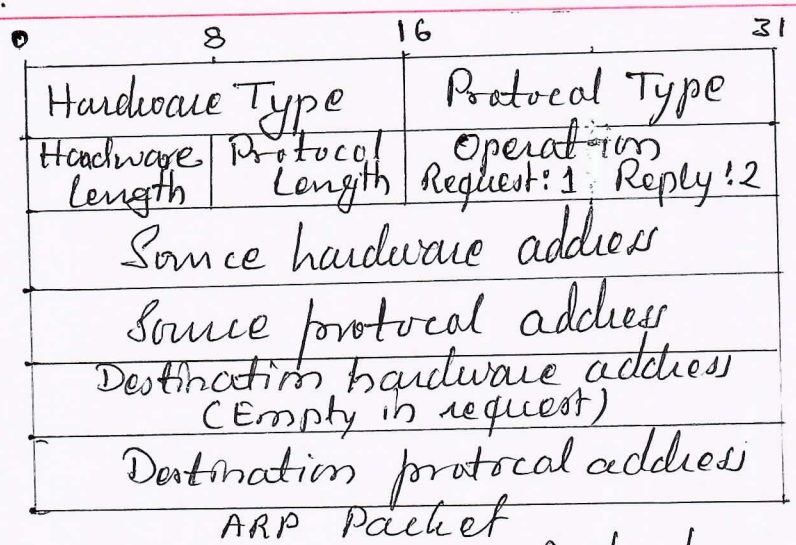 0 8 16 31
Hardware Type Protocol Type
Hardware Protocol Operation
Length Length Request: 1 Reply: 2
Source hardware address
Source protocol address
Destination hardware address
(Empty in request)
Destination protocol address
ARP Packet